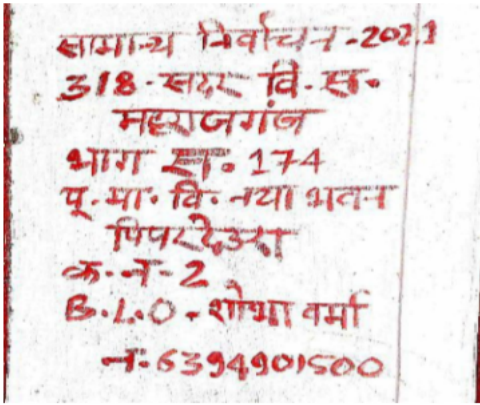 सामान्य निर्वाचन-2021
318-सदर वि. स.
महराजगंज
भाग स. 174
पू. मा. वि. नया भवन
पिपरदेउरा
क.-न-2
B.L.O. शोभा वर्मा
न.-6394901500